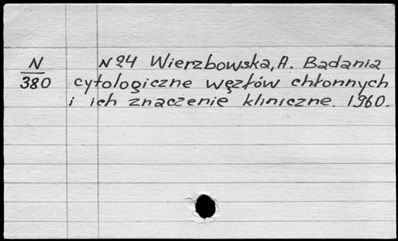 N
380
№24 Wierzbowska, A. Badania
cytologiczne węzłów chłonnych
i ich znaczenie kliniczne. 1960.